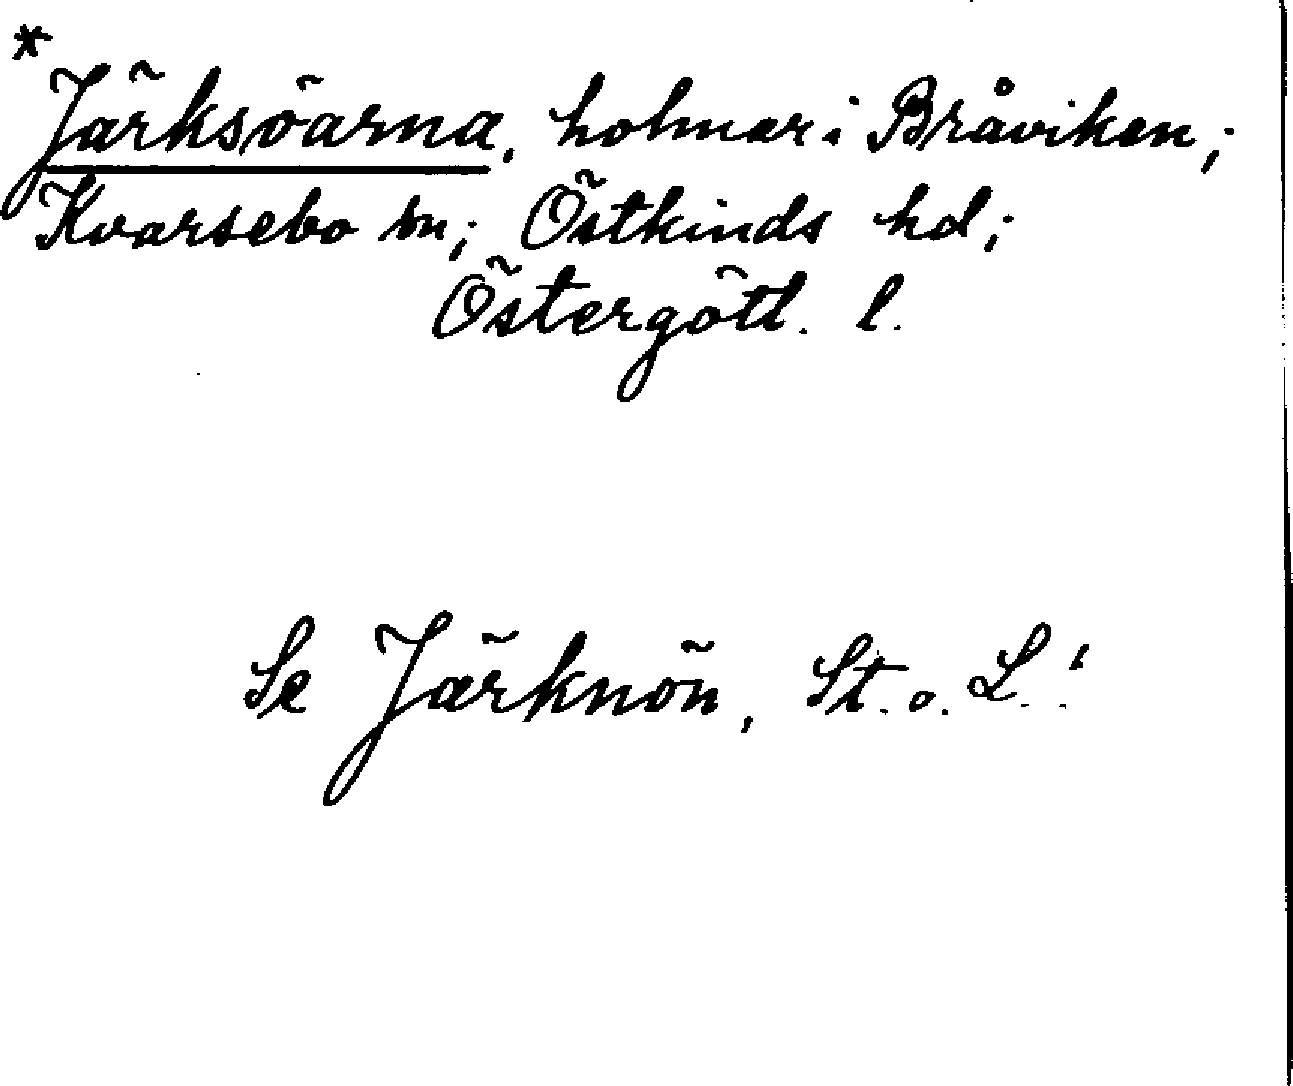 *
Järksöarna, holmar i Bråviken;
Kvarsebo sn; Östkinds hd;
Östergötl. l.
Se Järknön, St. o. L.!